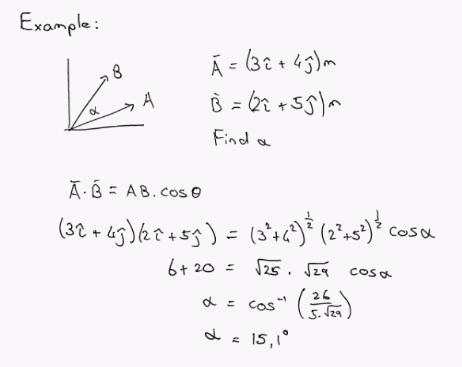 Example:
B
A
α
Ā = (3î + 4ĵ)m
B̄ = (2î + 5ĵ)m
Find α
Ā · B̄ = AB. cosθ
(3î + 4ĵ)(2î + 5ĵ) = (3² + 4²)^½ (2² + 5²)^½ cosα
6 + 20 = √25 . √29 cosα
α = cos⁻¹ (26 / 5.√29)
α = 15,1°